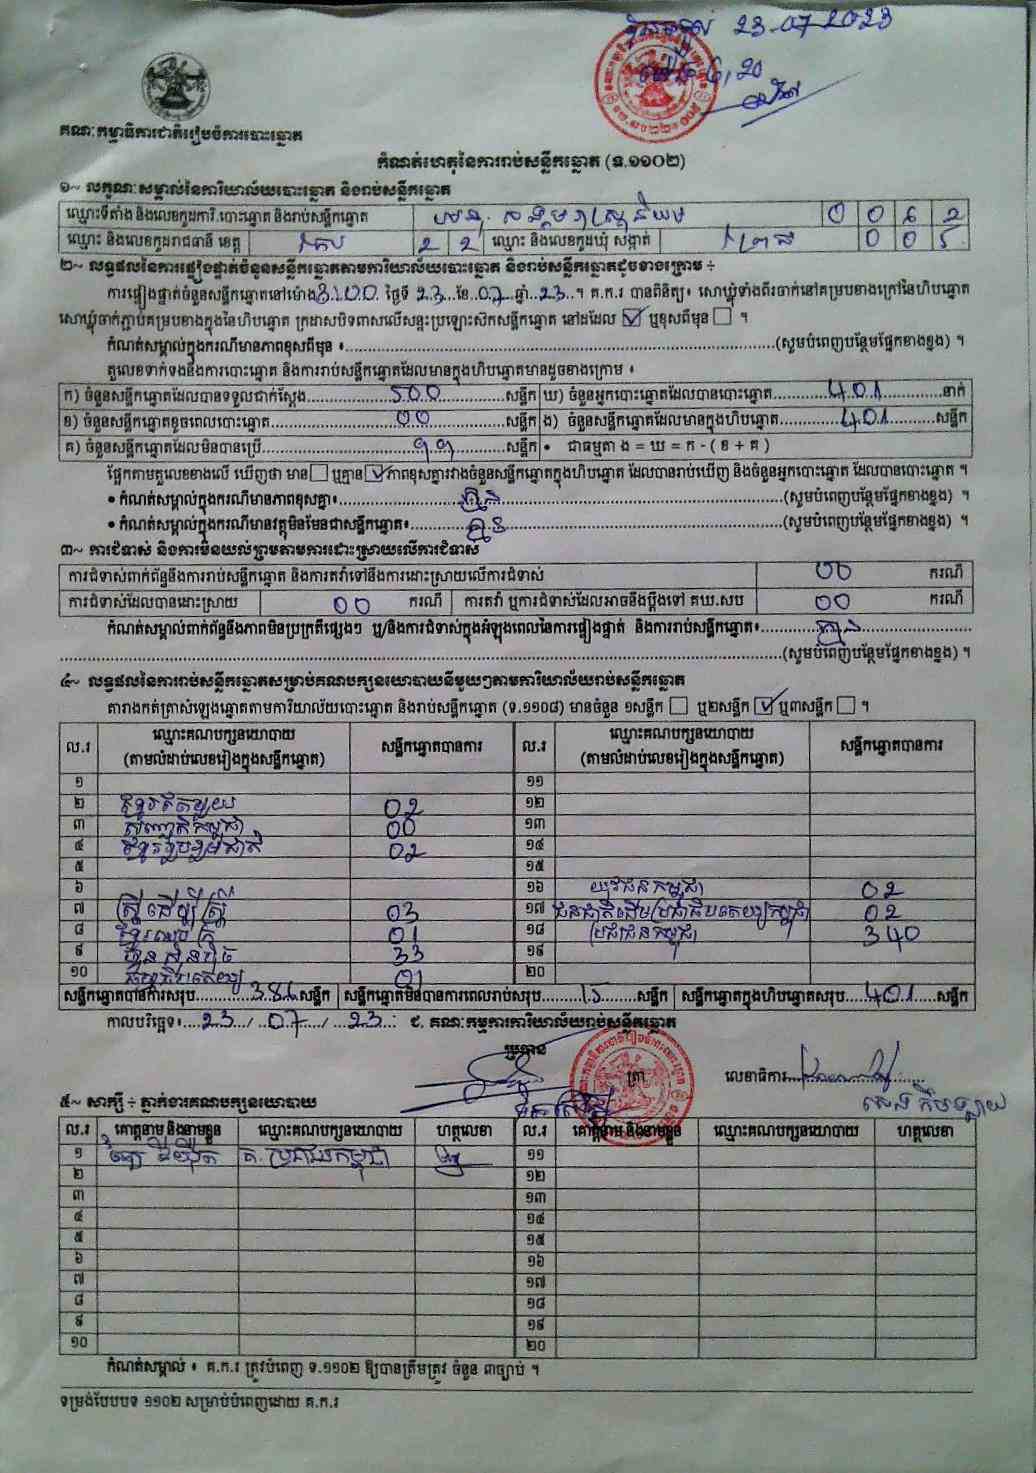 23-07-2023
គណៈកម្មាធិការជាតិរៀបចំការបោះឆ្នោត
កំណត់ហេតុនៃការរាប់សន្លឹកឆ្នោត (ទ.១១០២)
១~ លក្ខណៈសម្គាល់នៃការិយាល័យបោះឆ្នោត និងរាប់សន្លឹកឆ្នោត
ឈ្មោះទីតាំង និងលេខកូដការិ.បោះឆ្នោត និងរាប់សន្លឹកឆ្នោត 0 0 6 2
ឈ្មោះ និងលេខកូដរាជធានី ខេត្ត 2 2 ឈ្មោះ និងលេខកូដឃុំ សង្កាត់ 0 0 5
២~ លទ្ធផលនៃការផ្ទៀងផ្ទាត់ចំនួនសន្លឹកឆ្នោតតាមការិយាល័យបោះឆ្នោត និងរាប់សន្លឹកឆ្នោតដូចខាងក្រោម ÷
ការផ្ទៀងផ្ទាត់ចំនួនសន្លឹកឆ្នោតនៅម៉ោង ថ្ងៃទី 23 ខែ 07 ឆ្នាំ 23 ។ គ.ក.រ បានពិនិត្យ៖ សោឃ្លុំទាំងពីរចាក់នៅគម្របខាងក្រៅនៃហិបឆ្នោត
សោឃ្លុំចាក់ភ្ជាប់គម្របខាងក្នុងនៃហិបឆ្នោត ក្រដាសបិទពាសលើសន្ទះប្រឡោះសិកសន្លឹកឆ្នោត នៅដដែល ☑ ឬខុសពីមុន ☐ ។
កំណត់សម្គាល់ក្នុងករណីមានភាពខុសពីមុន ៖ (សូមបំពេញបន្ថែមផ្នែកខាងខ្នង) ។
តួលេខទាក់ទងនឹងការបោះឆ្នោត និងការរាប់សន្លឹកឆ្នោតដែលមានក្នុងហិបឆ្នោតមានដូចខាងក្រោម ៖
ក) ចំនួនសន្លឹកឆ្នោតដែលបានទទួលជាក់ស្តែង 500 សន្លឹក ឃ) ចំនួនអ្នកបោះឆ្នោតដែលបានបោះឆ្នោត 401 នាក់
ខ) ចំនួនសន្លឹកឆ្នោតខូចពេលបោះឆ្នោត 00 សន្លឹក ង) ចំនួនសន្លឹកឆ្នោតដែលមានក្នុងហិបឆ្នោត 401 សន្លឹក
គ) ចំនួនសន្លឹកឆ្នោតដែលមិនបានប្រើ 99 សន្លឹក • ជាធម្មតា ង = ឃ = ក - ( ខ + គ )
ផ្អែកតាមតួលេខខាងលើ ឃើញថា មាន ☐ ឬគ្មាន ☑ ភាពខុសគ្នារវាងចំនួនសន្លឹកឆ្នោតក្នុងហិបឆ្នោត ដែលបានរាប់ឃើញ និងចំនួនអ្នកបោះឆ្នោត ដែលបានបោះឆ្នោត ។
• កំណត់សម្គាល់ក្នុងករណីមានភាពខុសគ្នា៖ គ្មាន (សូមបំពេញបន្ថែមផ្នែកខាងខ្នង) ។
• កំណត់សម្គាល់ក្នុងករណីមានវត្ថុមិនមែនជាសន្លឹកឆ្នោត៖ គ្មាន (សូមបំពេញបន្ថែមផ្នែកខាងខ្នង) ។
៣~ ការជំទាស់ និងការមិនយល់ព្រមតាមការដោះស្រាយលើការជំទាស់
ការជំទាស់ពាក់ព័ន្ធនឹងការរាប់សន្លឹកឆ្នោត និងការតវ៉ាទៅនឹងការដោះស្រាយលើការជំទាស់ 00 ករណី
ការជំទាស់ដែលបានដោះស្រាយ 00 ករណី ការតវ៉ា ឬការជំទាស់ដែលអាចនឹងប្តឹងទៅ គឃ.សប 00 ករណី
កំណត់សម្គាល់ពាក់ព័ន្ធនឹងភាពមិនប្រក្រតីផ្សេងៗ ឬ/និងការជំទាស់ក្នុងអំឡុងពេលនៃការផ្ទៀងផ្ទាត់ និងការរាប់សន្លឹកឆ្នោត៖ គ្មាន
(សូមបំពេញបន្ថែមផ្នែកខាងខ្នង) ។
៤~ លទ្ធផលនៃការរាប់សន្លឹកឆ្នោតសម្រាប់គណបក្សនយោបាយនីមួយៗតាមការិយាល័យរាប់សន្លឹកឆ្នោត
តារាងកត់ត្រាសំឡេងឆ្នោតតាមការិយាល័យបោះឆ្នោត និងរាប់សន្លឹកឆ្នោត (ទ.១១០៨) មានចំនួន ១សន្លឹក ☐ ឬ២សន្លឹក ☑ ឬ៣សន្លឹក ☐ ។
ល.រ ឈ្មោះគណបក្សនយោបាយ (តាមលំដាប់លេខរៀងក្នុងសន្លឹកឆ្នោត) សន្លឹកឆ្នោតបានការ ល.រ ឈ្មោះគណបក្សនយោបាយ (តាមលំដាប់លេខរៀងក្នុងសន្លឹកឆ្នោត) សន្លឹកឆ្នោតបានការ
១ ១១
២ ខ្មែរតែមួយ 02 ១២
៣ សញ្ជាតិកម្ពុជា 00 ១៣
៤ ខ្មែររួបរួមជាតិ 02 ១៤
៥ ១៥
៦ ១៦ យុវជនកម្ពុជា 02
៧ ស្ត្រីដើម្បីស្ត្រី 03 ១៧ ជនជាតិដើមប្រជាធិបតេយ្យកម្ពុជា 02
៨ 01 ១៨ ប្រជាជនកម្ពុជា 340
៩ ហ៊្វុនស៊ិនប៉ិច 33 ១៩
១០ 01 ២០
សន្លឹកឆ្នោតបានការសរុប 386 សន្លឹក សន្លឹកឆ្នោតមិនបានការពេលរាប់សរុប 15 សន្លឹក សន្លឹកឆ្នោតក្នុងហិបឆ្នោតសរុប 401 សន្លឹក
កាលបរិច្ឆេទ៖ 23 / 07 / 23 ជ. គណៈកម្មការការិយាល័យរាប់សន្លឹកឆ្នោត
ប្រធាន
ត្រា លេខាធិការ
៥~ សាក្សី ÷ ភ្នាក់ងារគណបក្សនយោបាយ
ល.រ គោត្តនាម និងនាមខ្លួន ឈ្មោះគណបក្សនយោបាយ ហត្ថលេខា ល.រ គោត្តនាម និងនាមខ្លួន ឈ្មោះគណបក្សនយោបាយ ហត្ថលេខា
១ គ. ប្រជាជនកម្ពុជា ១១
២ ១២
៣ ១៣
៤ ១៤
៥ ១៥
៦ ១៦
៧ ១៧
៨ ១៨
៩ ១៩
១០ ២០
កំណត់សម្គាល់ ៖ គ.ក.រ ត្រូវបំពេញ ទ.១១០២ ឱ្យបានត្រឹមត្រូវ ចំនួន ៣ច្បាប់ ។
ទម្រង់បែបបទ ១១០២ សម្រាប់បំពេញដោយ គ.ក.រ